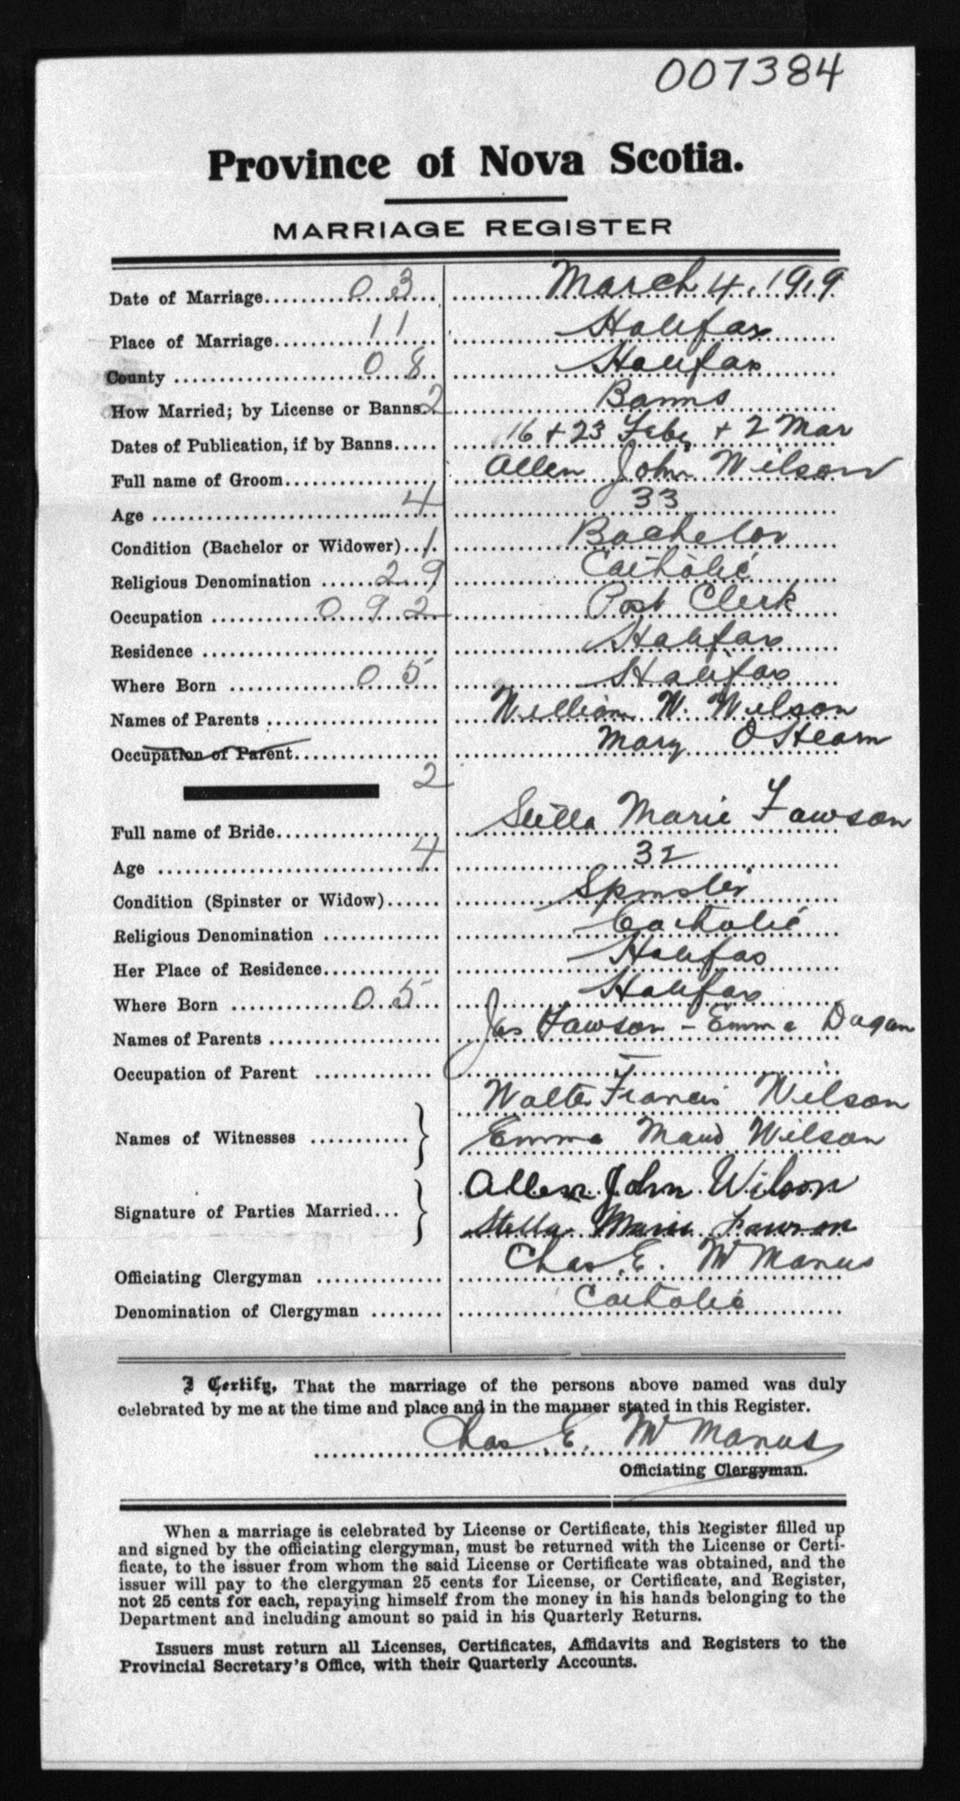 007384
Province of Nova Scotia.
MARRIAGE REGISTER
Date of Marriage 03 March 4, 1919
Place of Marriage 11 Halifax
County 08 Halifax
How Married; by License or Banns 2 Banns
Dates of Publication, if by Banns 16 + 23 Feb, + 2 Mar
Full name of Groom Allen John Wilson
Age 4 33
Condition (Bachelor or Widower) 1 Bachelor
Religious Denomination 29 Catholic
Occupation 092 Post Clerk
Residence Halifax
Where Born 05 Halifax
Names of Parents William W. Wilson
Occupation of Parent Mary O'Hearn
2
Full name of Bride Stella Marie Fawson
Age 4 32
Condition (Spinster or Widow) Spinster
Religious Denomination Catholic
Her Place of Residence Halifax
Where Born 05 Halifax
Names of Parents Jas Fawson - Emma Dugan
Occupation of Parent —
Walter Francis Wilson
Names of Witnesses } Emma Maud Wilson
Allen John Wilson
Signature of Parties Married } Stella Marie Fawson
Officiating Clergyman Chas. E. McManus
Denomination of Clergyman Catholic
I Certify, That the marriage of the persons above named was duly
celebrated by me at the time and place and in the manner stated in this Register.
Chas. E. McManus
Officiating Clergyman.
When a marriage is celebrated by License or Certificate, this Register filled up
and signed by the officiating clergyman, must be returned with the License or Certi-
ficate, to the issuer from whom the said License or Certificate was obtained, and the
issuer will pay to the clergyman 25 cents for License, or Certificate, and Register,
not 25 cents for each, repaying himself from the money in his hands belonging to the
Department and including amount so paid in his Quarterly Returns.
Issuers must return all Licenses, Certificates, Affidavits and Registers to the
Provincial Secretary's Office, with their Quarterly Accounts.